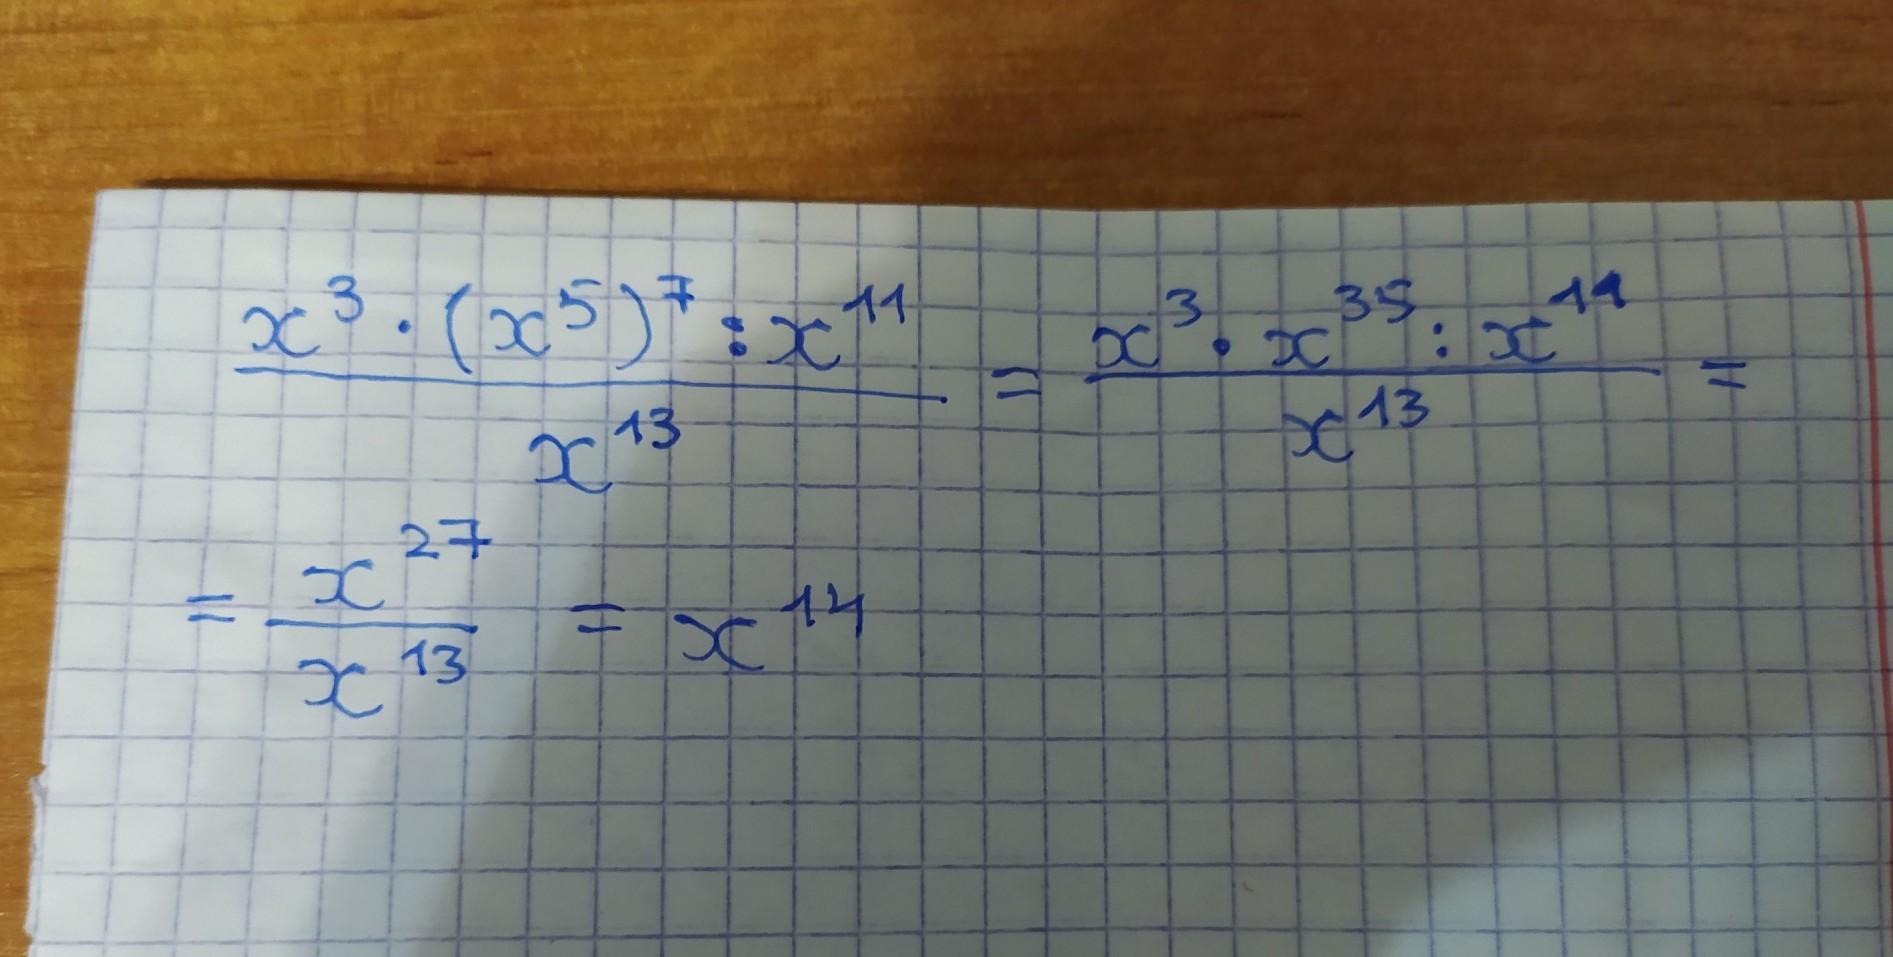 x³ · (x⁵)⁷ : x¹¹ / x¹³ = x³ · x³⁵ : x¹¹ / x¹³ =
= x²⁷ / x¹³ = x¹⁴